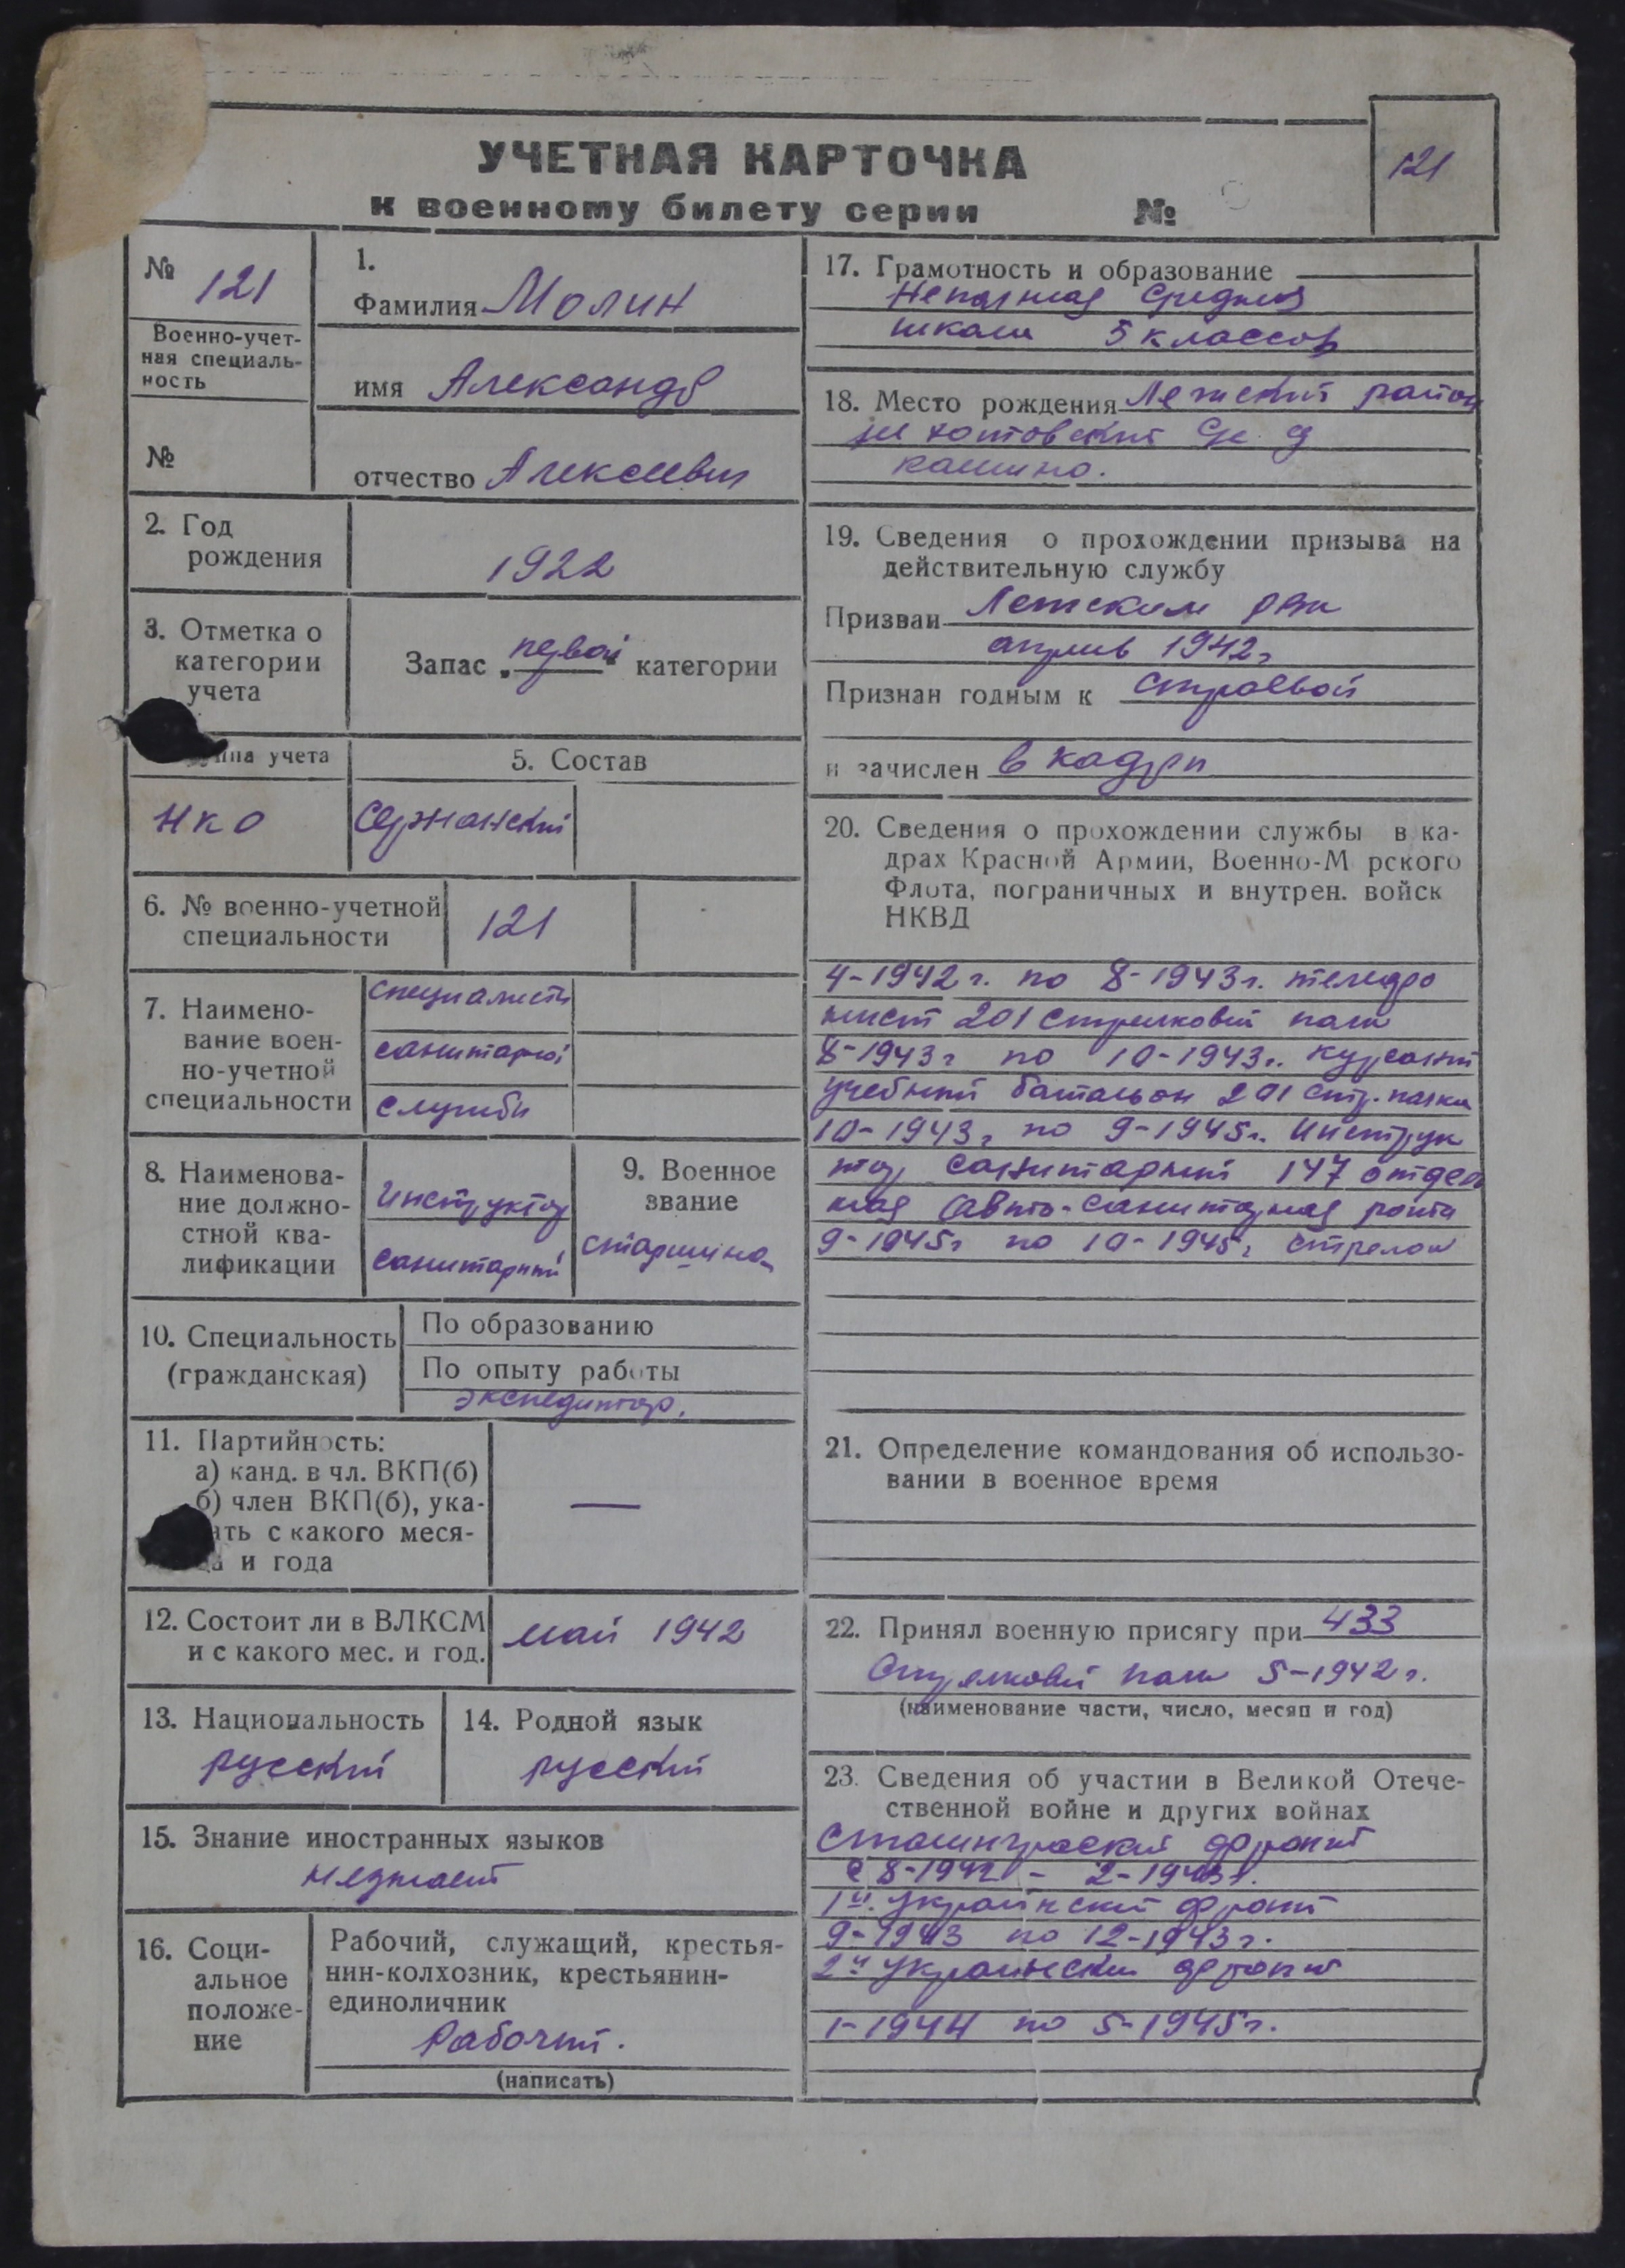 УЧЕТНАЯ КАРТОЧКА
к военному билету серии №
121
№ 121
Военно-учет-
ная специаль-
ность
№
1.
Фамилия Молин
имя Александр
отчество Алексеевич
2. Год
рождения
1922
3. Отметка о
категории
учета
Запас „первой“ категории
ппа учета
НКО
5. Состав
Сержанский
6. № военно-учетной
специальности
121
7. Наимено-
вание воен-
но-учетной
специальности
специалисты
санитарной
службы
8. Наименова-
ние должно-
стной ква-
лификации
Инструктор
санитарный
9. Военное
звание
старшина
10. Специальность
(гражданская)
По образованию
По опыту работы
экспедитор.
11. Партийность:
а) канд. в чл. ВКП(б)
б) член ВКП(б), ука-
ать с какого меся-
ца и года
—
12. Состоит ли в ВЛКСМ
и с какого мес. и год.
май 1942
13. Национальность
русский
14. Родной язык
русский
15. Знание иностранных языков
незнает
16. Соци-
альное
положе-
ние
Рабочий, служащий, крестья-
нин-колхозник, крестьянин-
единоличник
Рабочий.
(написать)
17. Грамотность и образование
Неполная средняя
школа 5 классов
18. Место рождения район
с
кашино.
19. Сведения о прохождении призыва на
действительную службу
Призван рвк
апрель 1942г
Признан годным к строевой
и зачислен в кадры
20. Сведения о прохождении службы в ка-
драх Красной Армии, Военно-М рского
Флота, пограничных и внутрен. войск
НКВД
4-1942г. по 8-1943г. телефо
нист 201 стрелковый полк
8-1943г по 10-1943г. курсант
учебный батальон 201 стр. полка
10-1943г по 9-1945г. Инструк
тор санитарный 147 отдель
ная авто-санитарная рота
9-1945г по 10-1945г стрелок
21. Определение командования об использо-
вании в военное время
22. Принял военную присягу при 433
Стрелковый полк 5-1942г.
(наименование части, число, месяц и год)
23. Сведения об участии в Великой Отече-
ственной войне и других войнах
Сталинградский фронт
с 8-1942 - 2-1943г.
1й Украинский фронт
9-1943 по 12-1943г.
2й Украинский фронт
1-1944 по 5-1945г.